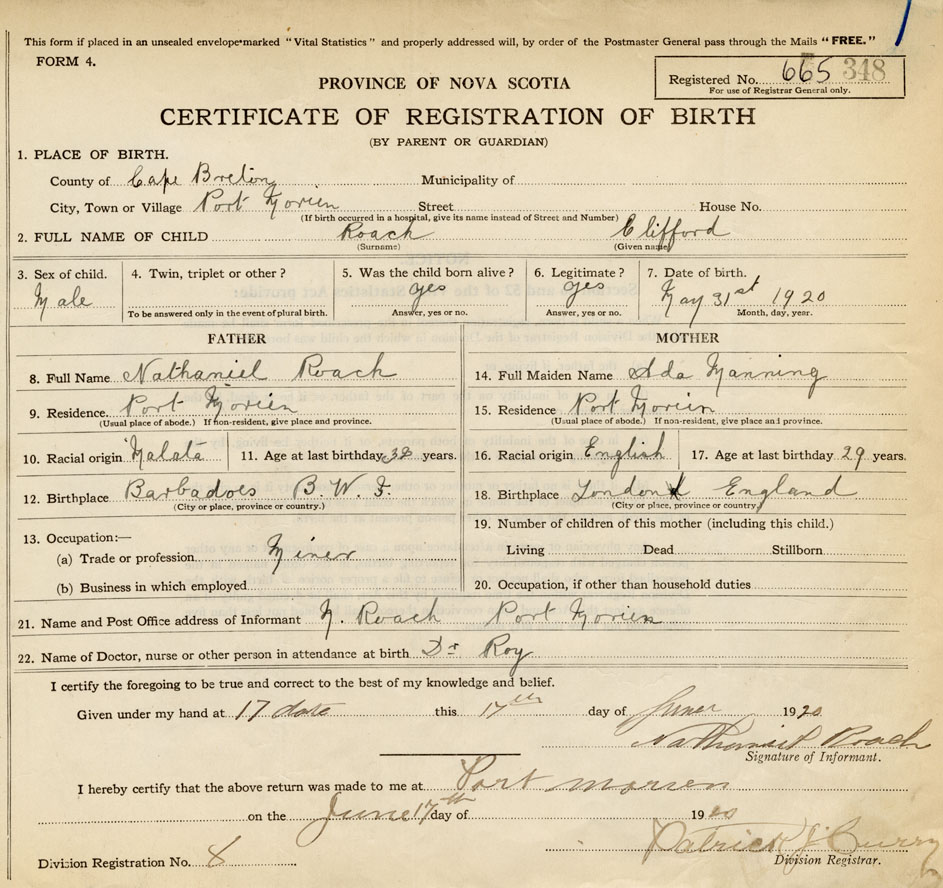 This form if placed in an unsealed envelope marked "Vital Statistics" and properly addressed will, by order of the Postmaster General pass through the Mails "FREE."
FORM 4.
PROVINCE OF NOVA SCOTIA
Registered No. 665 348
For use of Registrar General only.
CERTIFICATE OF REGISTRATION OF BIRTH
(BY PARENT OR GUARDIAN)
1. PLACE OF BIRTH.
County of Cape Breton Municipality of
City, Town or Village Port Morien Street House No.
(If birth occurred in a hospital, give its name instead of Street and Number)
2. FULL NAME OF CHILD Roach Clifford
(Surname) (Given name)
3. Sex of child. 4. Twin, triplet or other? 5. Was the child born alive? 6. Legitimate? 7. Date of birth.
Male yes yes May 31st 1920
To be answered only in the event of plural birth. Answer, yes or no. Answer, yes or no. Month, day, year.
FATHER MOTHER
8. Full Name Nathaniel Roach 14. Full Maiden Name Ada Manning
9. Residence. Port Morien 15. Residence Port Morien
(Usual place of abode.) If non-resident, give place and province. (Usual place of abode.) If non-resident, give place and province.
10. Racial origin Malata 11. Age at last birthday years. 16. Racial origin English 17. Age at last birthday 29 years.
12. Birthplace Barbadoes B. W. I. 18. Birthplace London England
(City or place, province or country.) (City or place, province or country)
13. Occupation:— 19. Number of children of this mother (including this child.)
(a) Trade or profession Miner Living Dead Stillborn
(b) Business in which employed 20. Occupation, if other than household duties
21. Name and Post Office address of Informant N. Roach Port Morien
22. Name of Doctor, nurse or other person in attendance at birth Dr Roy
I certify the foregoing to be true and correct to the best of my knowledge and belief.
Given under my hand at 17 date this 17th day of June 1920
Nathaniel Roach
Signature of Informant.
I hereby certify that the above return was made to me at Port Morien
on the June 17th day of 1920
Patrick J Curry
Division Registration No. 8 Division Registrar.